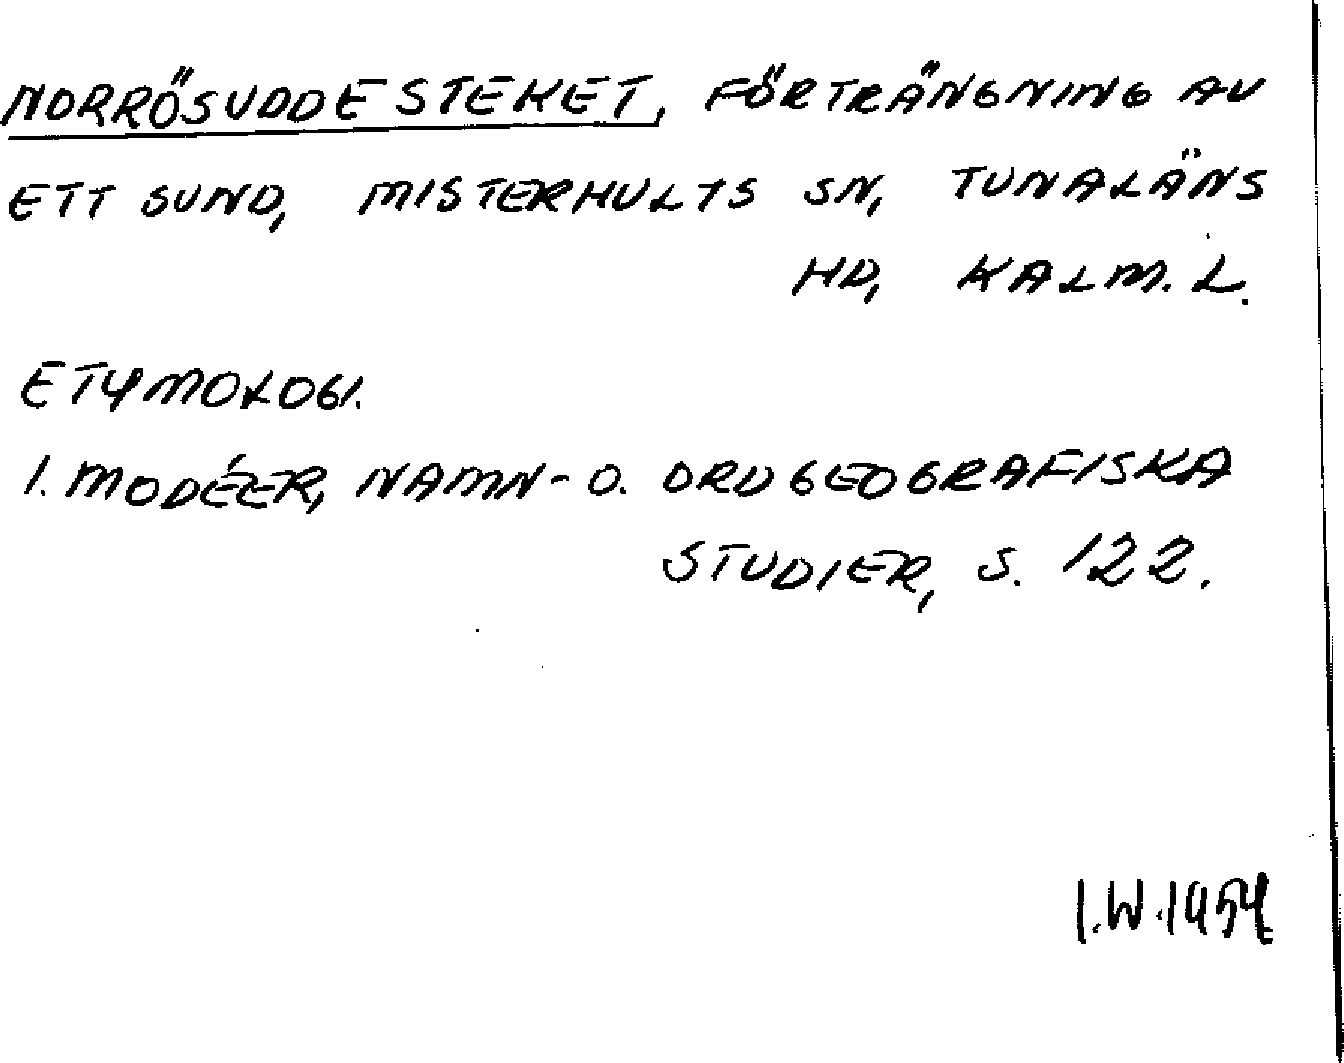 NORRÖSUDDESTEKET, FÖRTRÄNGNING AV
ETT SUND, MISTERHULTS SN, TUNALÄNS
HD, KALM. L.
ETYMOLOGI.
I. MODÉER, NAMN- O. ORDGEOGRAFISKA
STUDIER, S. 122.
I.W. 1954